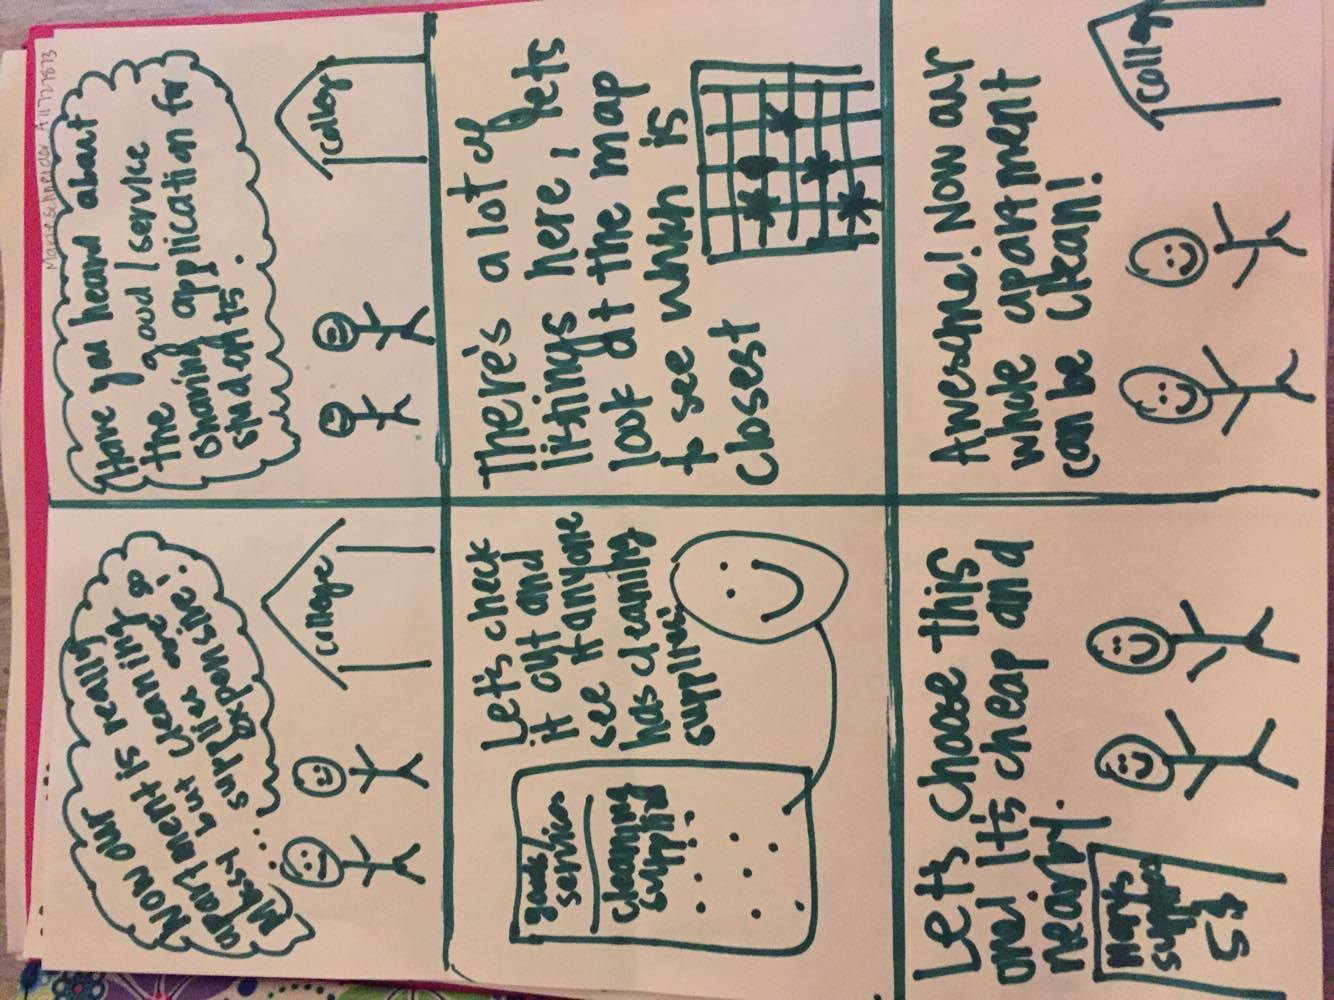 Marie Schneider
Now our
apartment is really
Messy but cleaning
.... supplies are so
expensive!
college
Have you heard about
the good/service
sharing application for
students?
college
goods/
services
cleaning
supplies
Let's check
it out and
see if anyone
has cleaning
supplies!
There's a lot of
listings here, lets
look at the map
to see which is
closest
Let's choose this
one! It's cheap and
nearby.
supplies
5$
Awesome! Now our
whole apartment
can be clean!